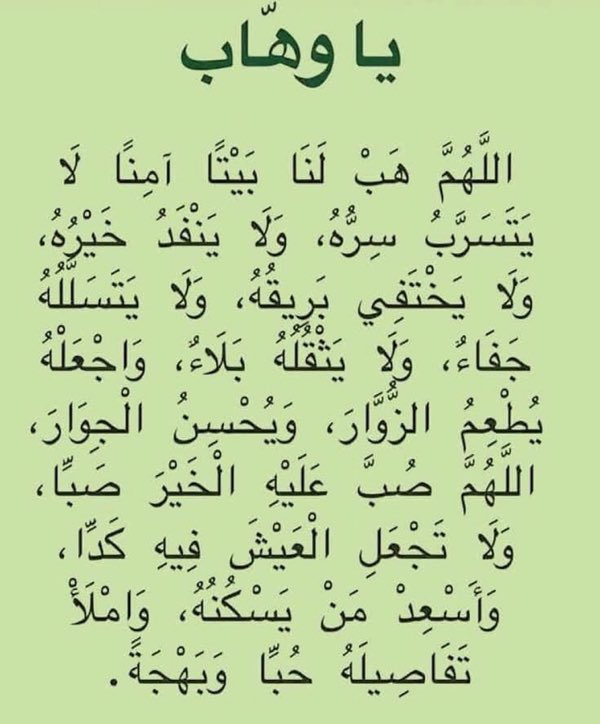 يا وهّاب
اللَّهُمَّ هَبْ لَنَا بَيْتًا آمِنًا لَا
يَتَسَرَّبُ سِرُّهُ، وَلَا يَنْفَدُ خَيْرُهُ،
وَلَا يَخْتَفِي بَرِيقُهُ، وَلَا يَتَسَلَّلُهُ
جَفَاءٌ، وَلَا يَثْقُلُهُ بَلَاءٌ، وَاجْعَلْهُ
يُطْعِمُ الزُّوَّارَ، وَيُحْسِنُ الْجِوَارَ،
اللَّهُمَّ صُبَّ عَلَيْهِ الْخَيْرَ صَبًّا،
وَلَا تَجْعَلِ الْعَيْشَ فِيهِ كَدًّا،
وَأَسْعِدْ مَنْ يَسْكُنُهُ، وَامْلَأْ
تَفَاصِيلَهُ حُبًّا وَبَهْجَةً.